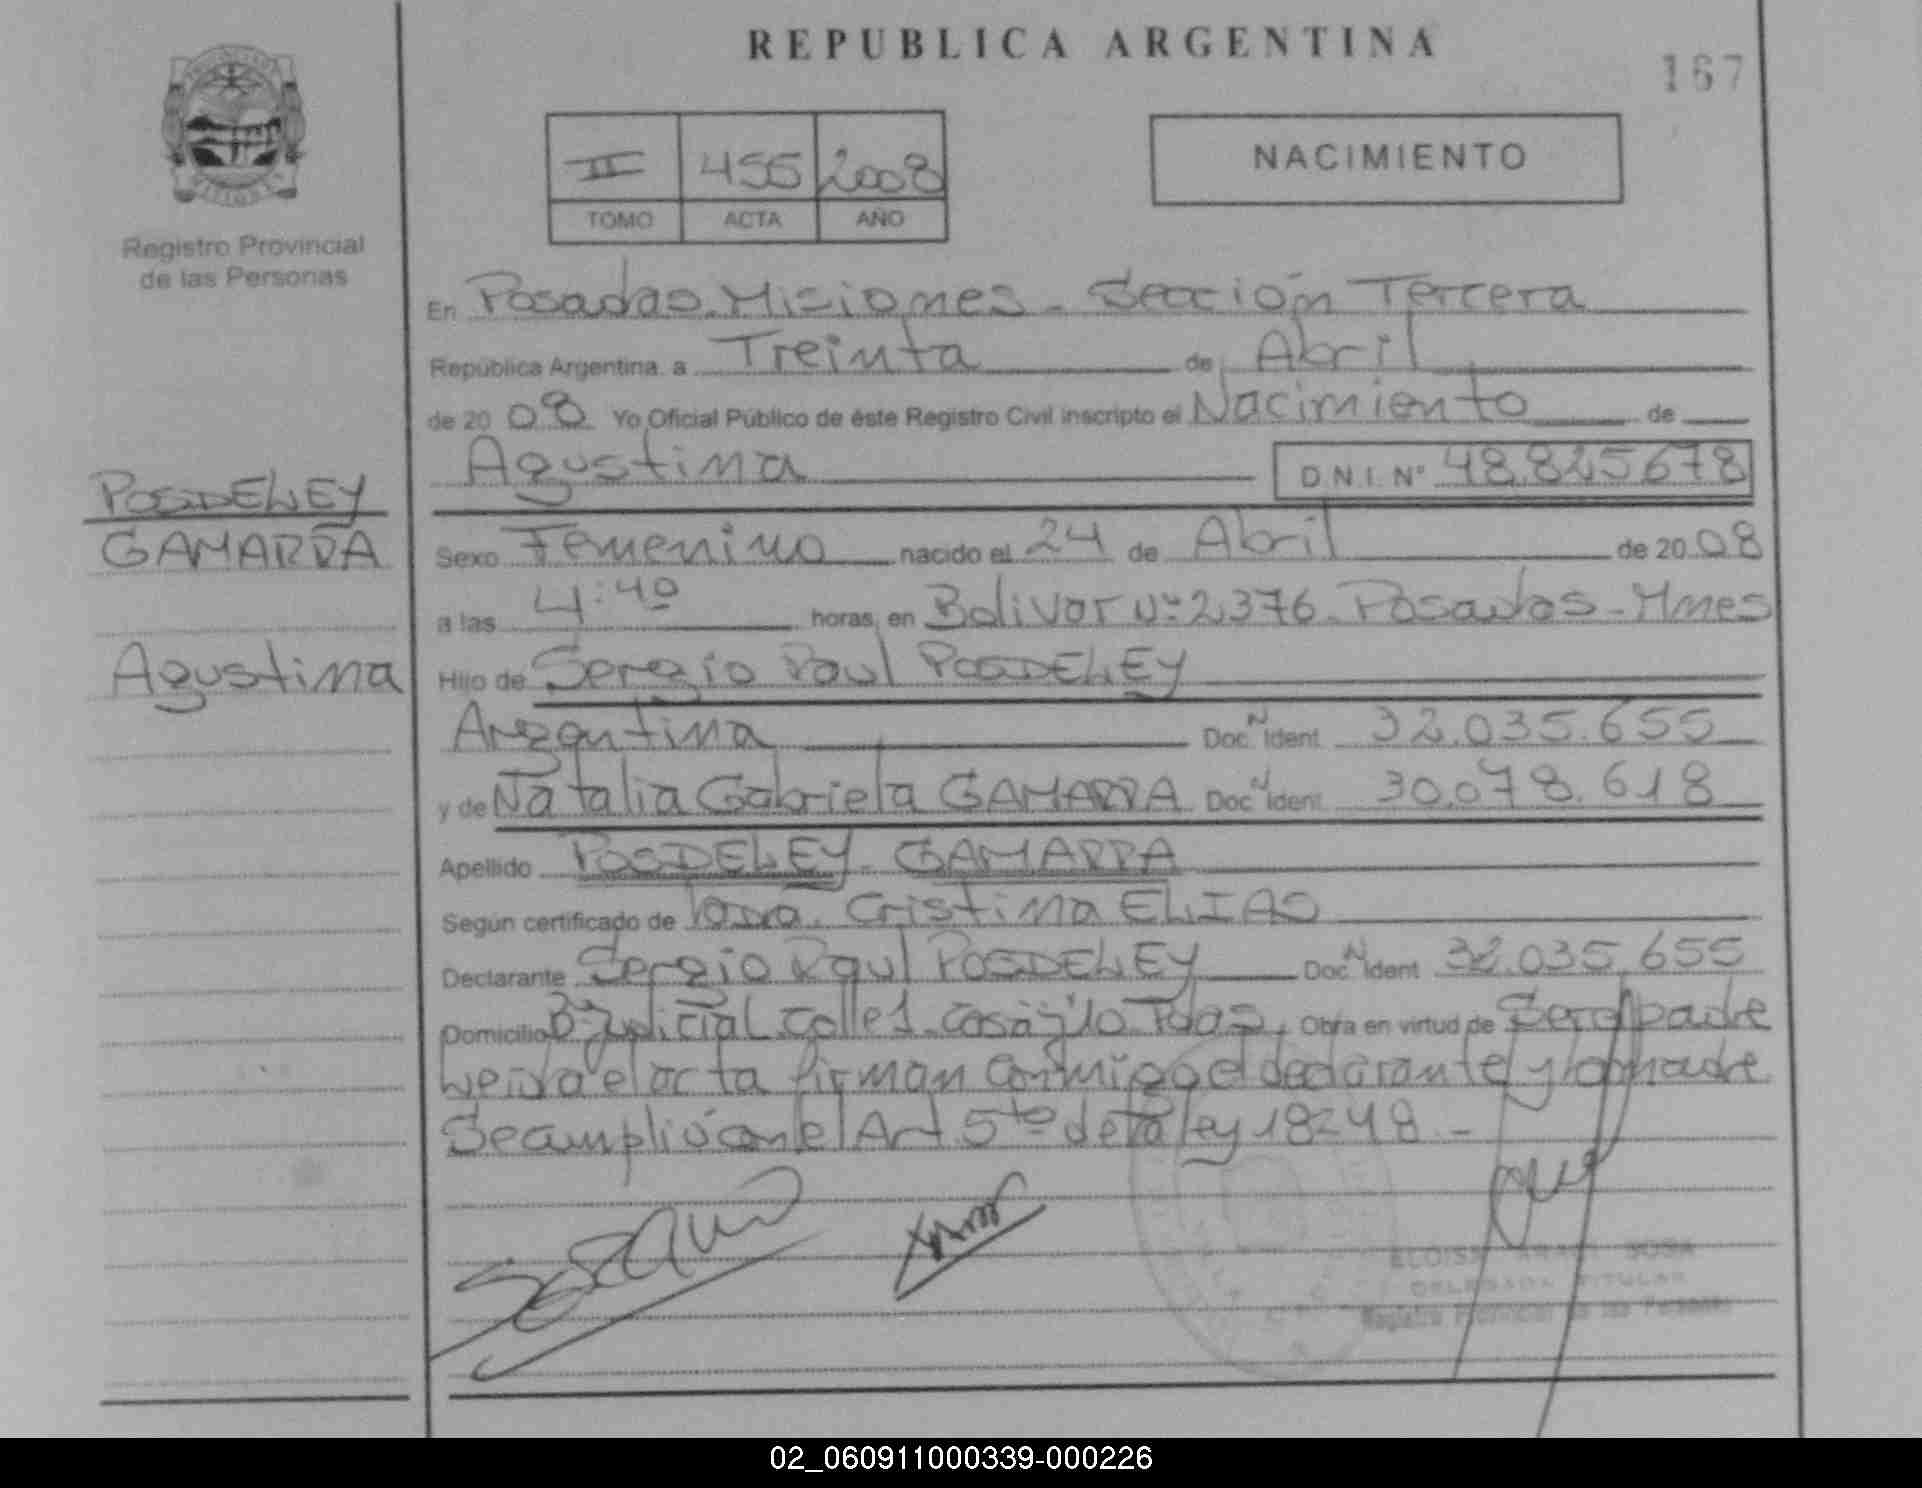 REPUBLICA ARGENTINA
167
Registro Provincial
de las Personas
III 455 2008
TOMO ACTA AÑO
NACIMIENTO
En Posadas. Misiones - Sección Tercera
República Argentina. a Treinta de Abril
de 2008 Yo Oficial Público de éste Registro Civil inscripto el Nacimiento de
Agustina D.N.I. Nº 48.825678
POSDELEY
GAMARRA
Agustina
Sexo Femenino nacido el 24 de Abril de 2008
a las 4:40 horas, en Bolivar Nº 2376. Posadas - Mnes
Hijo de Sergio Raul POSDELEY
Argentina Doc. N Ident. 32.035.655
y de Natalia Gabriela GAMARRA Doc. N Ident. 30.078.618
Apellido POSDELEY - GAMARRA
Según certificado de Cristina ELIAS
Declarante Sergio Raul POSDELEY Doc. N Ident. 32.035.655
Domicilio Bº Judicial Calle 1 Casa Pdas. Obra en virtud de Ser el padre
Leida el acta firman conmigo el declarante y la madre
Se cumplió con el Art. 5to de la ley 18248.-
SOSA
DELEGADA TITULAR
Registro Provincial de las Personas
02_060911000339-000226